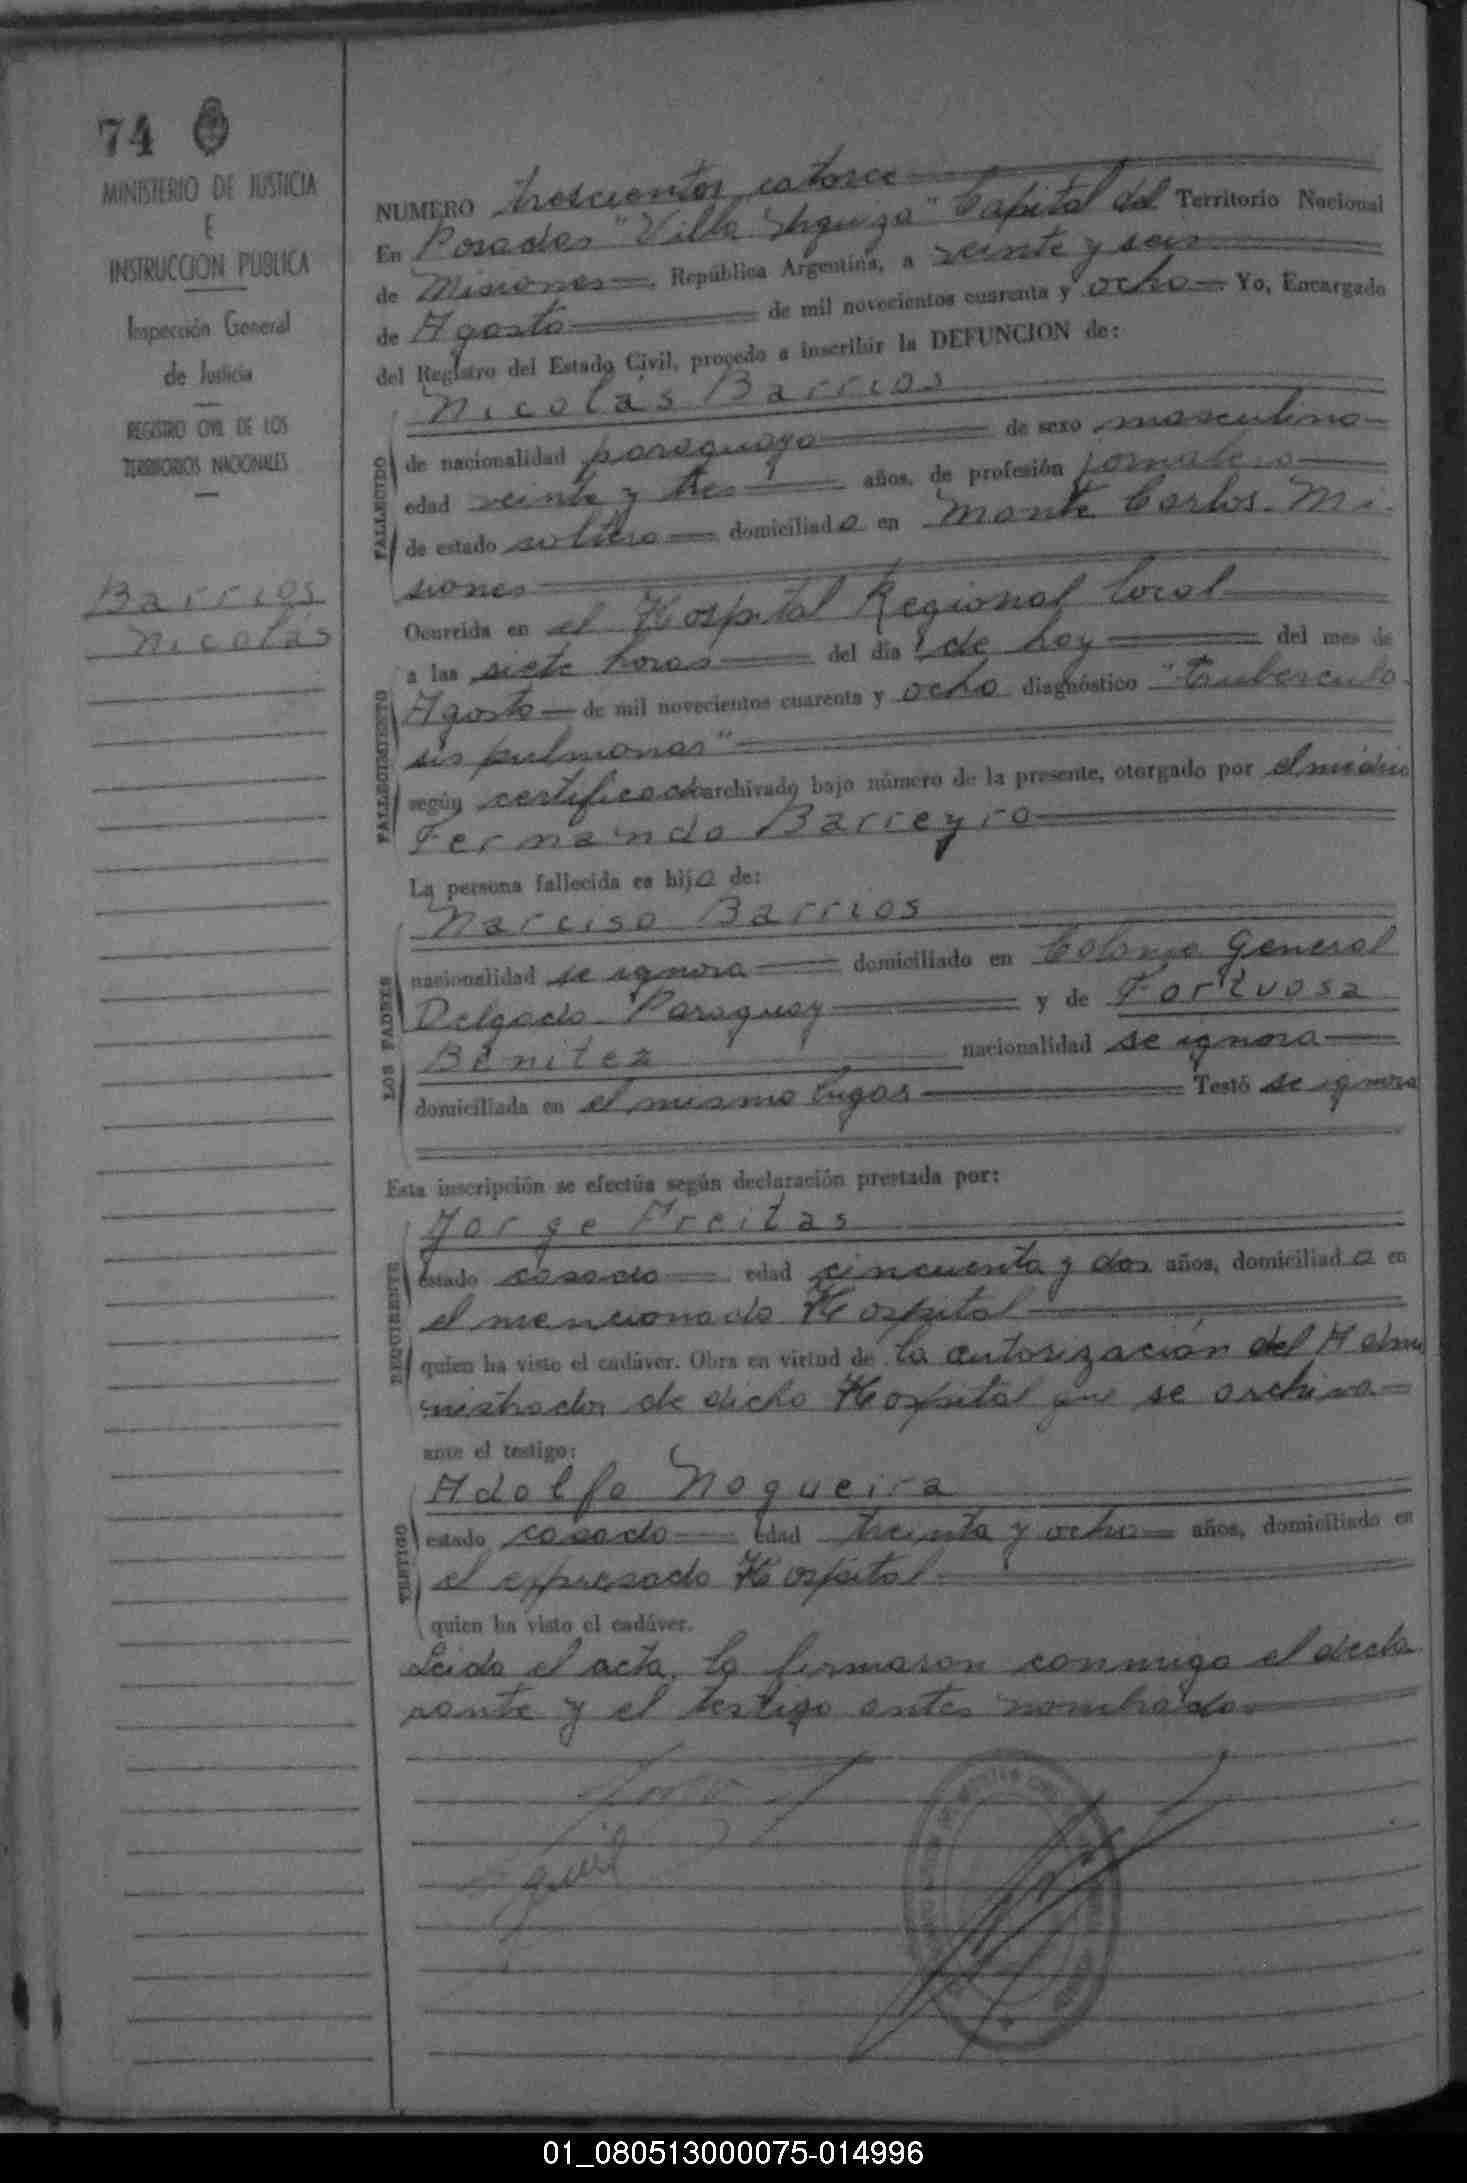 74
MINISTERIO DE JUSTICIA
E
INSTRUCCION PUBLICA
Inspección General
de Justicia
REGISTRO CIVIL DE LOS
TERRITORIOS NACIONALES
Barrios
Nicolás
NUMERO trescientos catorce
En Posadas "Villa Urquiza" Capital del Territorio Nacional
de Misiones, República Argentina, a veinte y seis
de Agosto de mil novecientos cuarenta y ocho. Yo, Encargado
del Registro del Estado Civil, procedo a inscribir la DEFUNCION de:
FALLECIDO
Nicolás Barrios
de nacionalidad paraguaya de sexo masculino
edad veinte y tres años, de profesión jornalero
de estado soltero domiciliado en Monte Carlos. Mi-
siones
FALLECIMIENTO
Ocurrida en el Hospital Regional local
a las siete horas del día de hoy del mes de
Agosto de mil novecientos cuarenta y ocho diagnóstico "truberculo-
sis pulmonar"
según certificado archivado bajo número de la presente, otorgado por el médico
Fernando Barreyro
La persona fallecida es hijo de:
LOS PADRES
Narciso Barrios
nacionalidad se ignora domiciliado en Colonia General
Delgado. Paraguay y de Fortuosa
Benitez nacionalidad se ignora
domiciliada en el mismo lugar Testó se ignora
Esta inscripción se efectúa según declaración prestada por:
REQUIRENTE
Jorge Freitas
estado casado edad cincuenta y dos años, domiciliado en
el mencionado Hospital
quien ha visto el cadáver. Obra en virtud de la autorización del Admi
nistrador de dicho Hospital que se archiva
ante el testigo:
TESTIGO
Adolfo Nogueira
estado casado edad treinta y ocho años, domiciliado en
el expresado Hospital
quien ha visto el cadáver.
Leida el acta, la firmaron conmigo el decla
rante y el testigo antes nombrado
01_080513000075-014996